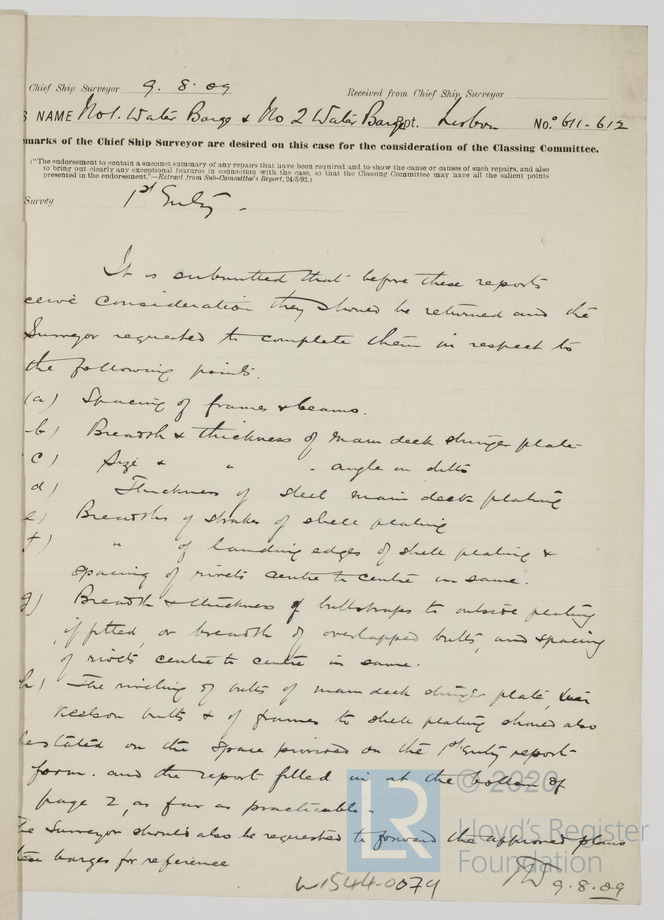 Chief Ship Surveyor 9.8.09 Received from Chief Ship Surveyor
S NAME No 1. Water Barge & No 2 Water Barge Rpt. Lisbon No.º 611-612
marks of the Chief Ship Surveyor are desired on this case for the consideration of the Classing Committee.
("The endorsement to contain a succinct summary of any repairs that have been required and to show the cause or causes of such repairs, and also
to bring out clearly any exceptional features in connection with the case, so that the Classing Committee may have all the salient points
presented in the endorsement."—Extract from Sub-Committee's Report, 24/5/92.)
Survey 1st Entry.
It is submitted that before these reports
ceive consideration they should be returned and the
Surveyor requested to complete them in respect to
the following points.
(a) Spacing of frames & beams.
b) Breadth & thickness of main deck stringer plate
c) Size & " " angle on ditto
d) Thickness of steel main deck plating
e) Breadths of strakes of shell plating
f) " of landing edges of shell plating &
spacing of rivets centre to centre in same.
g) Breadth & thickness of buttstraps to outside plating
if fitted, or breadth of overlapped butts, and spacing
of rivets centre to centre in same.
h) The riveting of butts of main deck stringer plate,
keelson butts & of frames to shell plating should also
be stated on the space provided on the 1st Entry report
form. and the report filled in at the bottom of
page 2, as far as practicable.
The Surveyor should also be requested to forward the approved plans
these barges for reference
9.8.09
W1544-0074
© 2020
Lloyd's Register
Foundation
LR